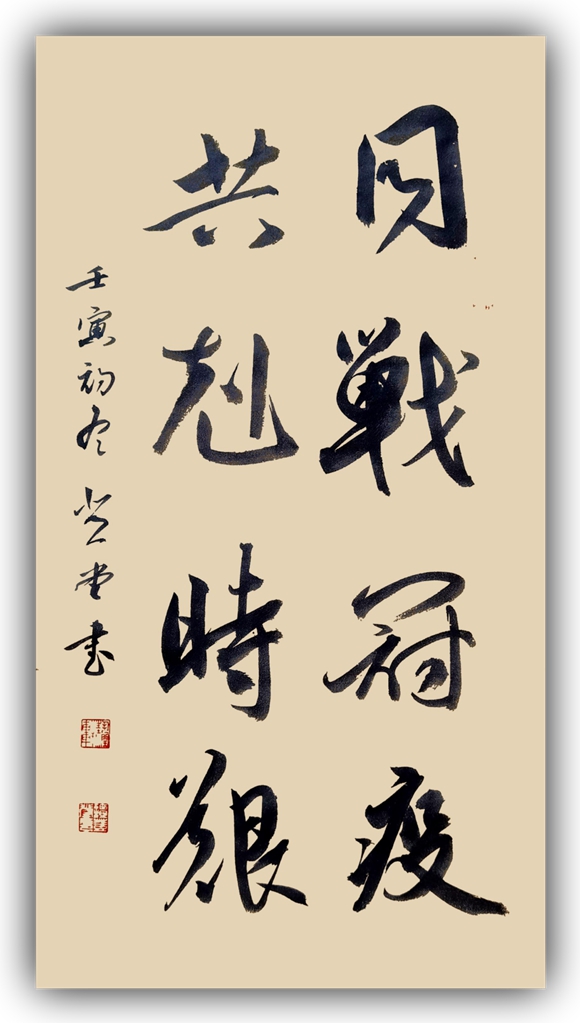 同戰冠疫
共剋時艱
壬寅初冬 堂書